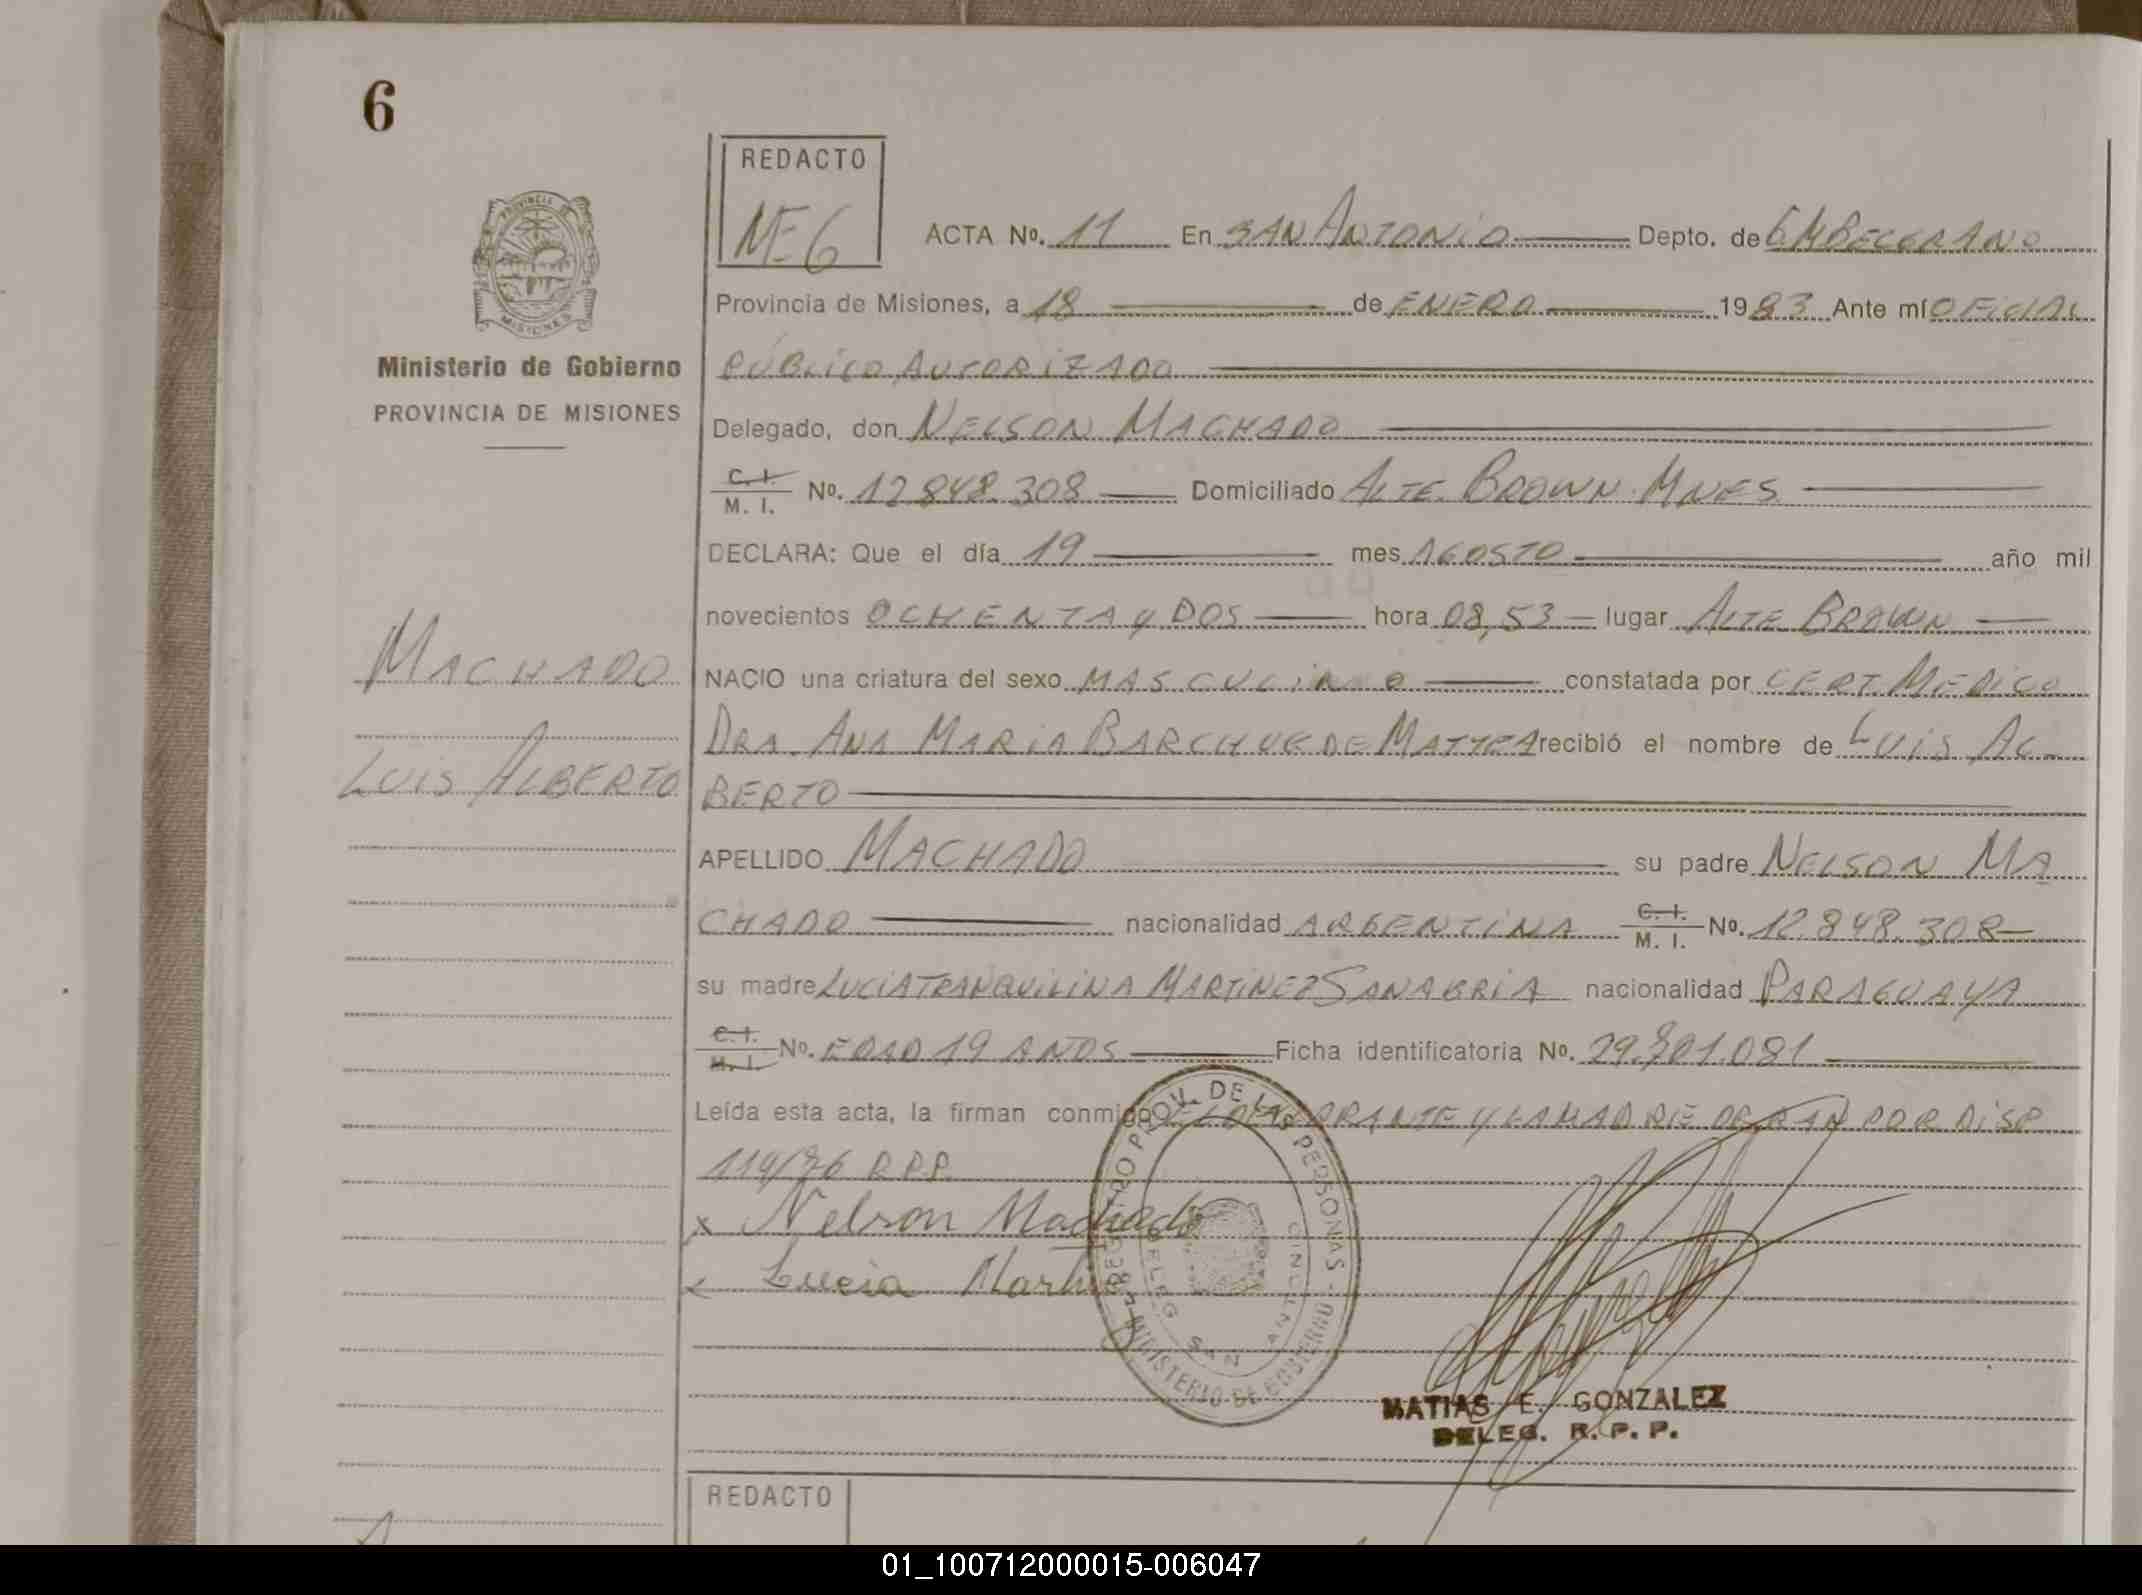 6
REDACTO
MEG
ACTA Nº. 11 En SAN ANTONIO Depto. de GMBELGRANO
Provincia de Misiones, a 18 de ENERO 1983 Ante mí OFICIAL
PÚBLICO AUTORIZADO
Ministerio de Gobierno
PROVINCIA DE MISIONES
Delegado, don NELSON MACHADO
C. I. / M. I. Nº. 12.848.308 Domiciliado ALTE. BROWN. MNES
DECLARA: Que el día 19 mes AGOSTO año mil
novecientos OCHENTA y DOS hora 08,53 lugar ALTE BROWN
MACHADO
LUIS ALBERTO
NACIO una criatura del sexo MASCULINO constatada por CERT MEDICO
DRA. ANA MARIA DE recibió el nombre de LUIS AL-
BERTO
APELLIDO MACHADO su padre NELSON MA
CHADO nacionalidad ARGENTINA C. I. / M. I. Nº. 12.848.308
su madre LUCIA TRANQUILINA MARTINEZ SANABRIA nacionalidad PARAGUAYA
C. I. / M. I. Nº. EDAD 19 AÑOS Ficha identificatoria Nº.
Leída esta acta, la firman conmigo EL DECLARANTE Y LA MADRE POR DISP
R.P.P.
x Nelson Machado
x Lucia
REGISTRO PROV. DE LAS PERSONAS - MINISTERIO DE GOBIERNO
DELEG SAN ANTONIO
MATIAS E. GONZALEZ
DELEG. R. P. P.
REDACTO
01_100712000015-006047